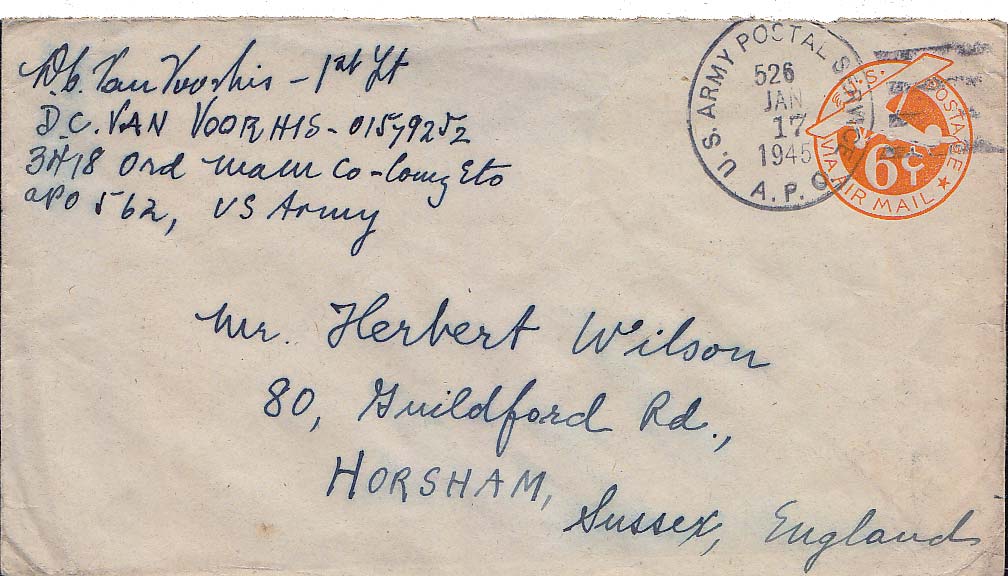 D.C. Van Voorhis - 1st Lt
D.C. VAN VOORHIS - 01579252
3418 Ord Maim Co - Comz Eto
APO 562, US Army
U.S. ARMY POSTAL SERVICE
526
JAN
17
1945
A.P.O.
U.S. POSTAGE
6¢
VIA AIR MAIL
Mr. Herbert Wilson
80, Guildford Rd.,
HORSHAM,
Sussex, England